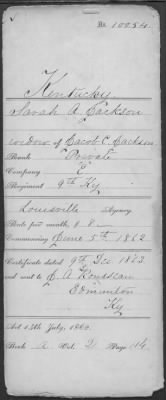 No. 10054
Kentucky
Sarah A Jackson
widow of Jacob C. Jackson
Rank Private
Company E
Regiment 9th Ky
Louisville Agency
Rate per month, $ 8
Commencing June 5th 1862
Certificate dated 9th Dec 1863
and sent to J. A Rousseau
Edmunton
Ky
Act 14th July, 1862.
Book A Vol. 2 Page 114